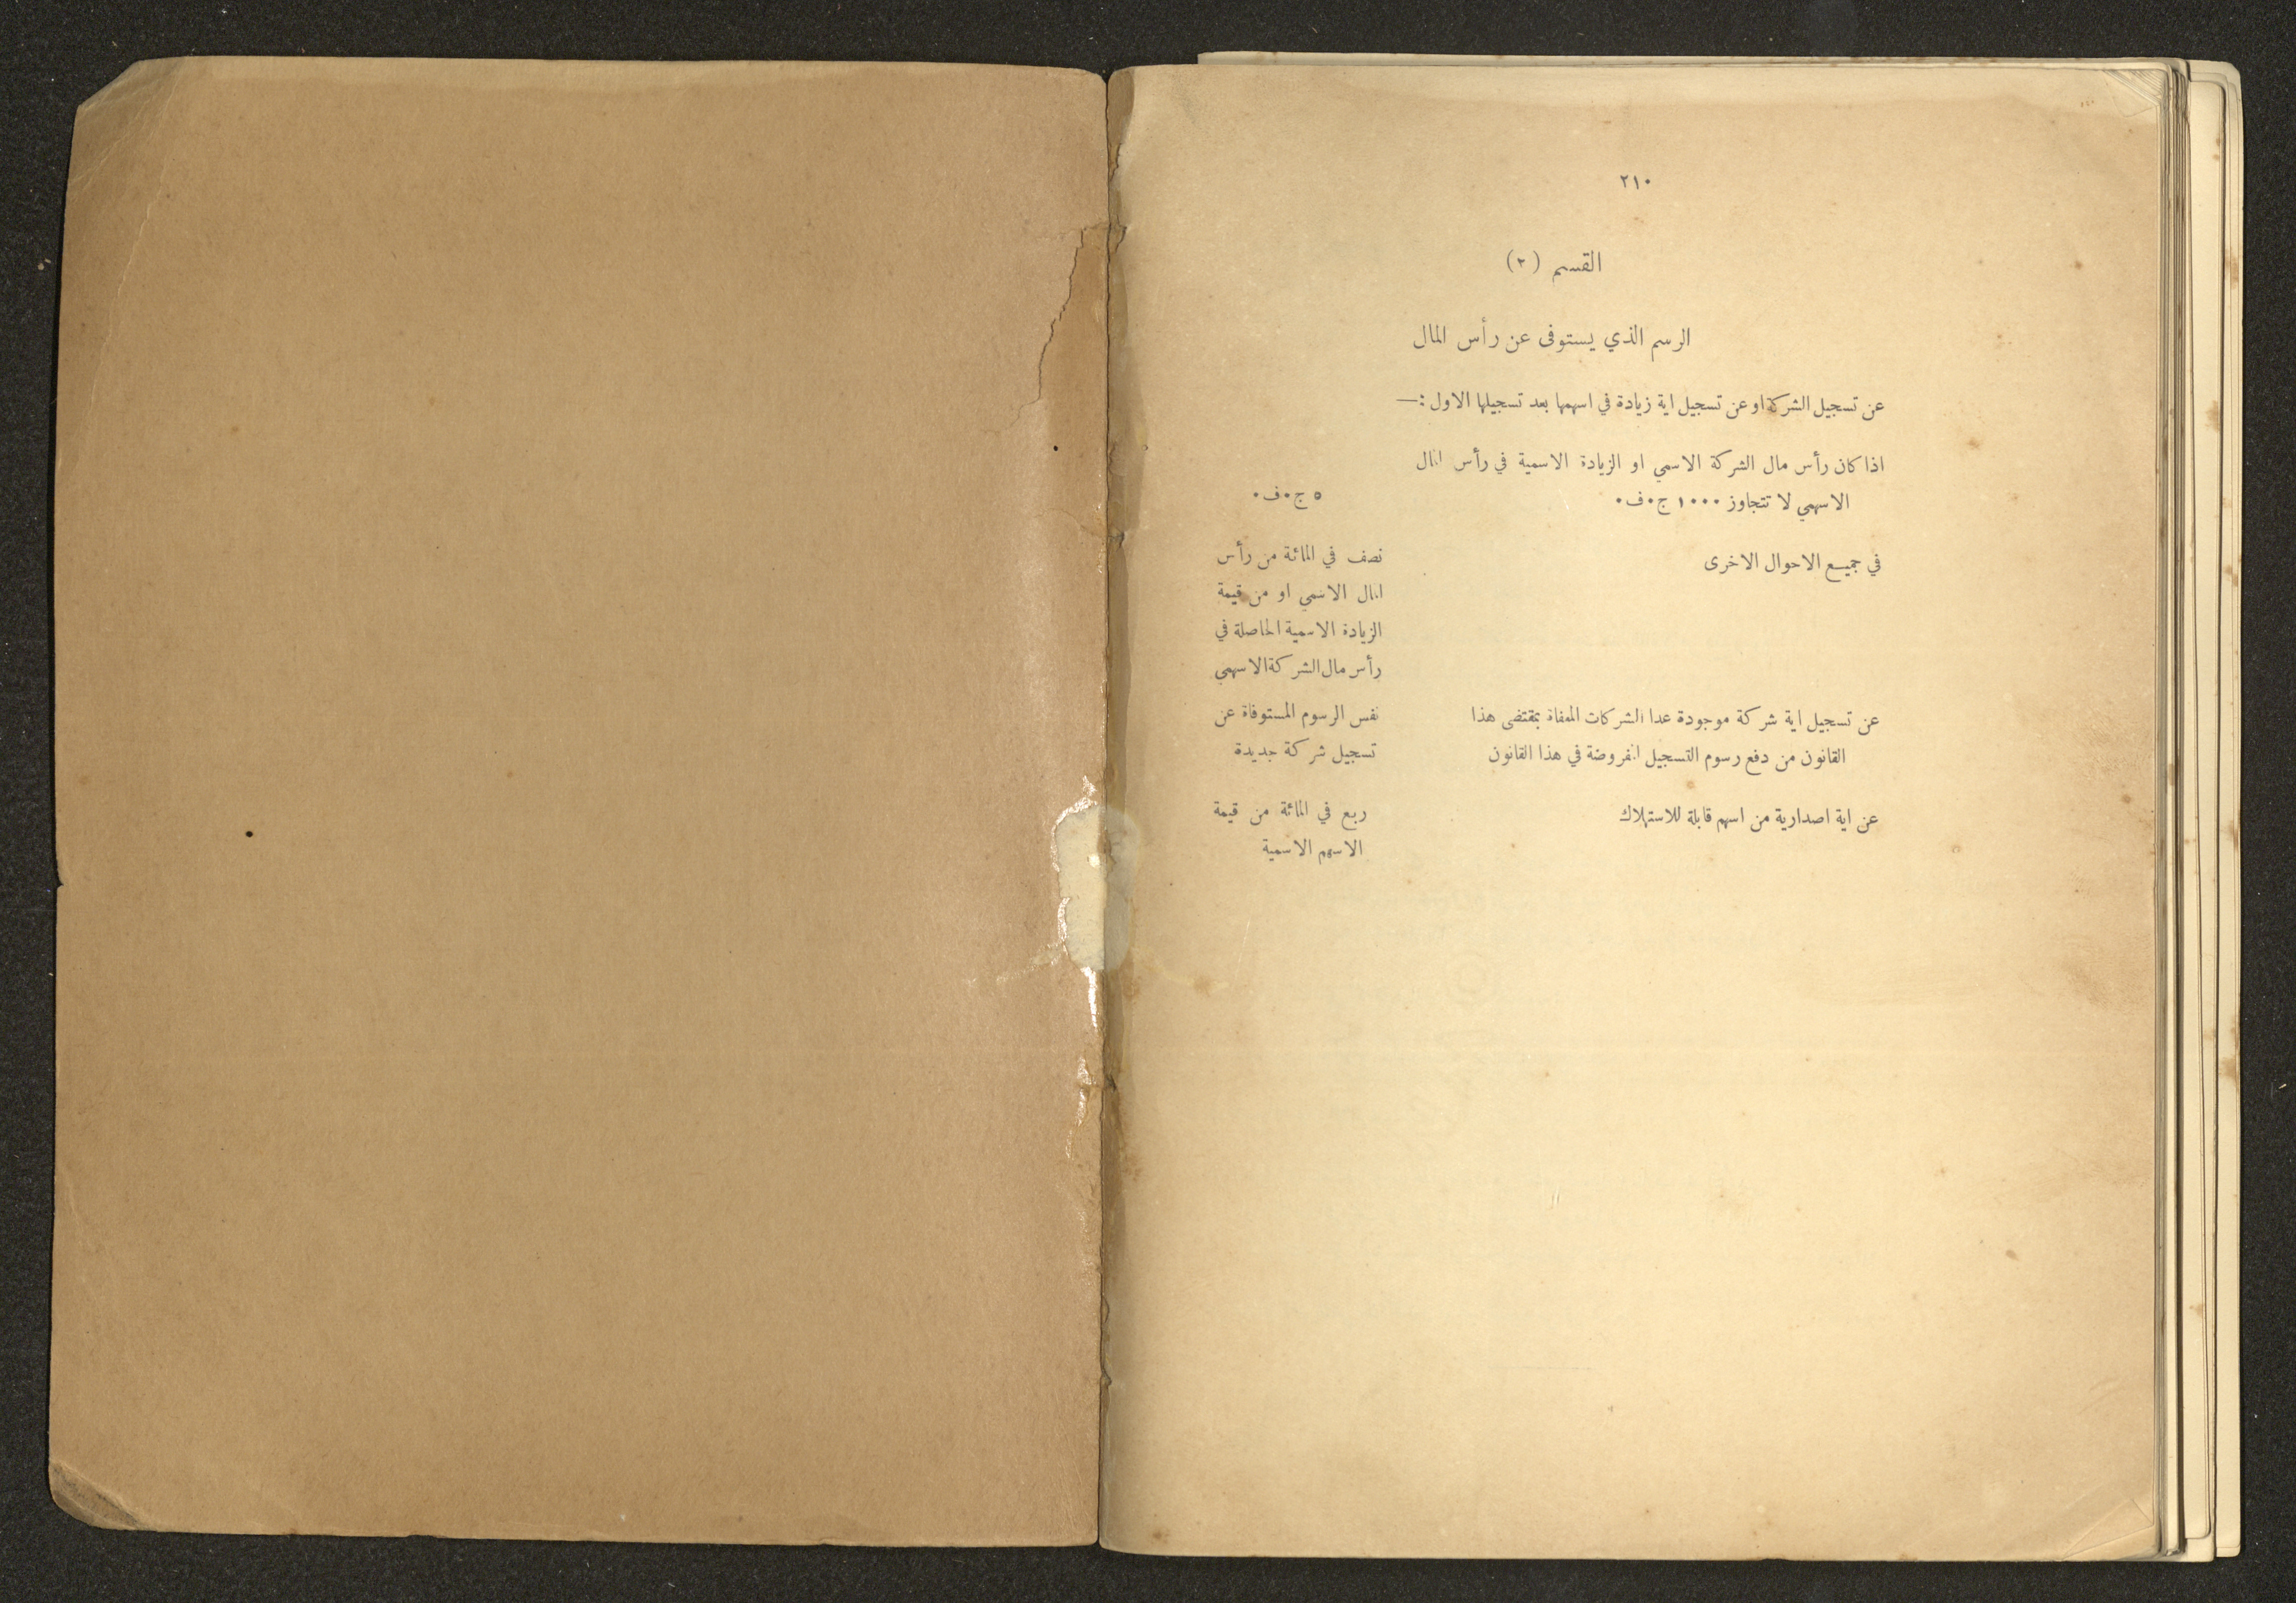 ٢١٠
القسم (٢)
الرسم الذي يستوفى عن رأس المال
عن تسجيل الشركة او عن تسجيل اية زيادة في اسهمها بعد تسجيلها الاول :—
اذا كان رأس مال الشركة الاسمي او الزيادة الاسمية في رأس المال
الاسهمي لا تتجاوز ١٠٠٠ ج٠ف٠
٥ ج٠ف٠
في جميع الاحوال الاخرى
نصف في المائة من رأس
المال الاسمي او من قيمة
الزيادة الاسمية الحاصلة في
رأس مال الشركة الاسهمي
عن تسجيل اية شركة موجودة عدا الشركات المعفاة بمقتضى هذا
القانون من دفع رسوم التسجيل المفروضة في هذا القانون
نفس الرسوم المستوفاة عن
تسجيل شركة جديدة
عن اية اصدارية من اسهم قابلة للاستهلاك
ربع في المائة من قيمة
الاسهم الاسمية